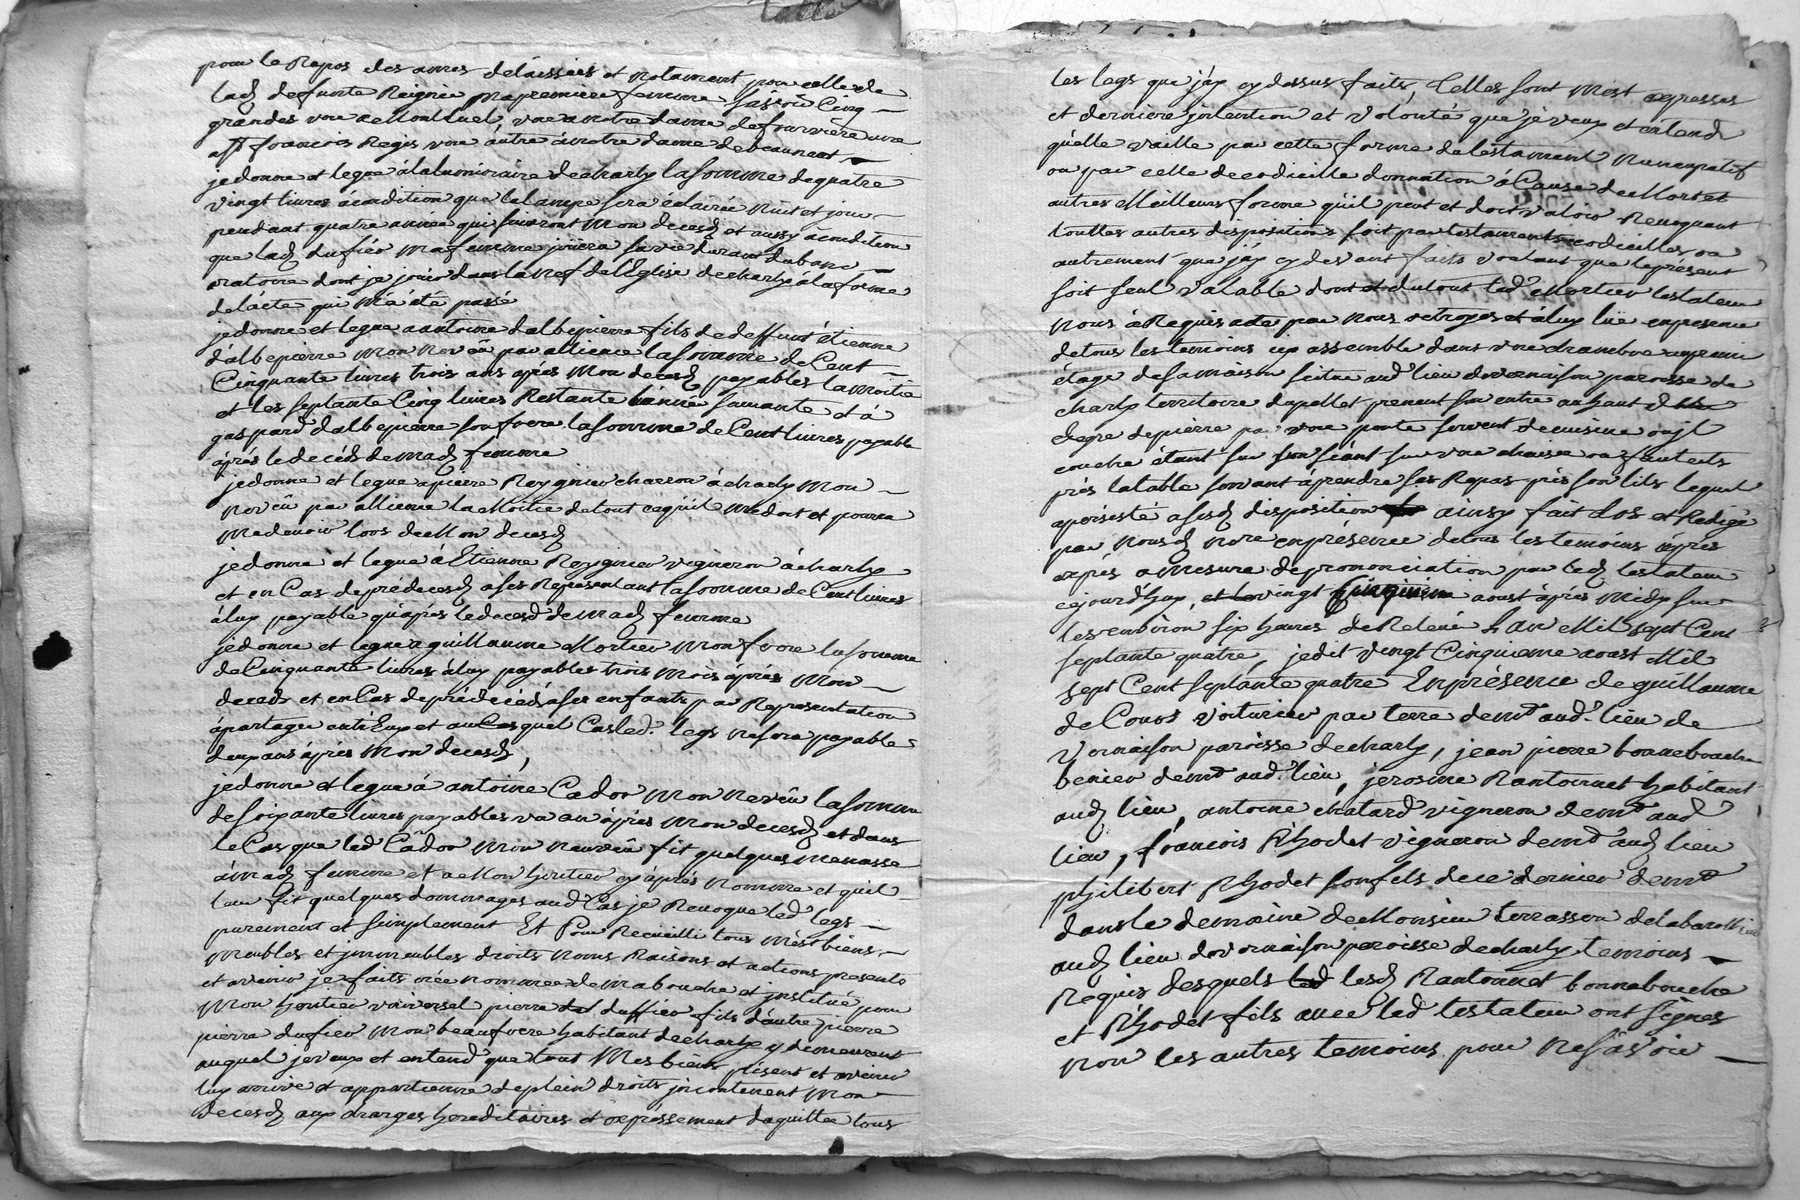 pour le Repos des ames délaissées et notament pour celle de
lad defunte Reignié ma premiere femme sçavoir Cinq
grandes une a Montluel, une a notre dame de fourviére une
a st françois Regis une autre a notre dame de beaunant
je donne et legue à la luminiaire de charly la somme de quatre
vingt livres à condition que la lampe sera éclairée nuit et jour
pendant quatre année qui suivront mon deceds et aussy à condition
que lad dufieu ma femme joüira sa vie durant du banc
oratoire dont je jouis dans la nef de l'Eglise de charly à la forme
de l'acte qui m'a été passé
je donne et legue a antoine dalbepierre fils de deffunt étienne
d'albepierre mon neveu par allience la somme de Cent
Cinquante livres trois ans après mon deceds payables la moitié
et les septante Cinq livres Restante l'année suivante et à
gaspard d'albepierre son frere la somme de Cent livres payable
aprés le decéds de mad femme
je donne et legue a pierre Reygnier charron à charly mon
neveu par allience la moitié de tout ce qu'il me doit et pourra
me devoir lors de mon deceds
je donne et legue à Etienne Reygnier vigneron à charly
et en Cas de prédeceds a ses Representant la somme de Cent livres
à luy payable qu'aprés le deceds de mad femme
je donne et legue a guillaume Mortier mon frere la somme
de Cinquante livres à luy payables trois mois après mon
deceds et en Cas de prédécéds a ses enfants par Representation
à partager entr'Eux et auCasquel Cas led. legs ne sera payable
deux ans après mon deceds,
je donne et legue à antoine Cador mon neveu la somme
de soixante livres payables un an aprés mon deceds et dans
le Cas que led Cador mon neuveu fit quelques menasse
à mad femme et a mon heritier cy aprés nommé et quil
leur fit quelques dommages aud Cas je Revoque led legs
purement et simplement Et Pour Recueilli tous mest biens
meubles et immeubles droits noms Raisons et actions presents
et avenir je faits crée nommée de ma bouche et institué pour
mon heritier universel pierre duffieu fils d'autre pierre
pierre dufieu mon beaufrere habitant de charly y demeurent
auquel je veux et entend que tout Mes biens présent et avenir
luy arrive et appartienne de plein droits incontinent mon
deceds aux charges hereditaires et expréssement d'aquitter tous
les legs que j'ay cy dessus faits, Telles sont mest expresses
et derniere intention et volonté que je veux et entend
qu'elle vaille par cette forme de testament nuncupatif
ou par celle de codicille donnation à Cause de Mort et
autres Meilleurs forme qu'il peut et doit valoir Revoquant
touttes autres dispositions soit par testaments codicilles, ou
autrement que j'ay cy devant faits voulant que le présent
soit seul valable dont et du tout led Mortier testateur
nous à Requis acte par nous octroyés et à luy lüe en presence
de tous les temoins icy assemblé dans une chambre au premier
étage de sa maison scitue aud lieu de vernaison paroisse de
charly territoire du pellet prenent son entré au haut d
degre de pierre par une porte servent de cuisine ou il
couche étant sur son séant sur une chaise ou fauteüil
prés la table servant à prendre ses Repas prés son lits lequel
a persisté a sesd disposition ainsy fait Lus et Redigé
par nousd nore en présence de tous les temoins après
arpés a mesure de prononciation par led testateur
cejourd'huy, vingt Cinquieme aoust après midy sur
les environ six heures de Relevé Lan Mil sept Cent
septante quatre, jedit vingt Cinquieme aoust Mil
sept Cent septante quatre En présence de guillaume
de Cours voiturier par terre demt aud. lieu de
vernaison paroisse de charly, jean pierre bonnebouche
benier demt aud. lieu, jerosme Rantonnet habitant
aud lieu, antoine chatard vigneron demt aud
lieu, françois Rhodet vigneron demt aud lieu
philibert Rhodet son fils de ce dernier demt
dans le domaine de Monsieur terrasson de la barolliere
aud lieu de vernaison paroisse de charly temoins
Requis desquels lesd Rantonnet bonnebouche
et Rhodet fils avec led testateur ont signes
non les autres temoins pour ne sçavoir